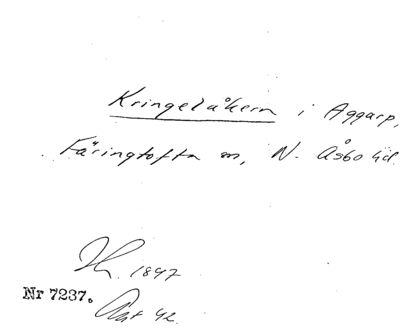 Kringelåkern i Aggarp,
Färingtofta sn, N. Åsbo hd.
1847
Nr 7237.
42.